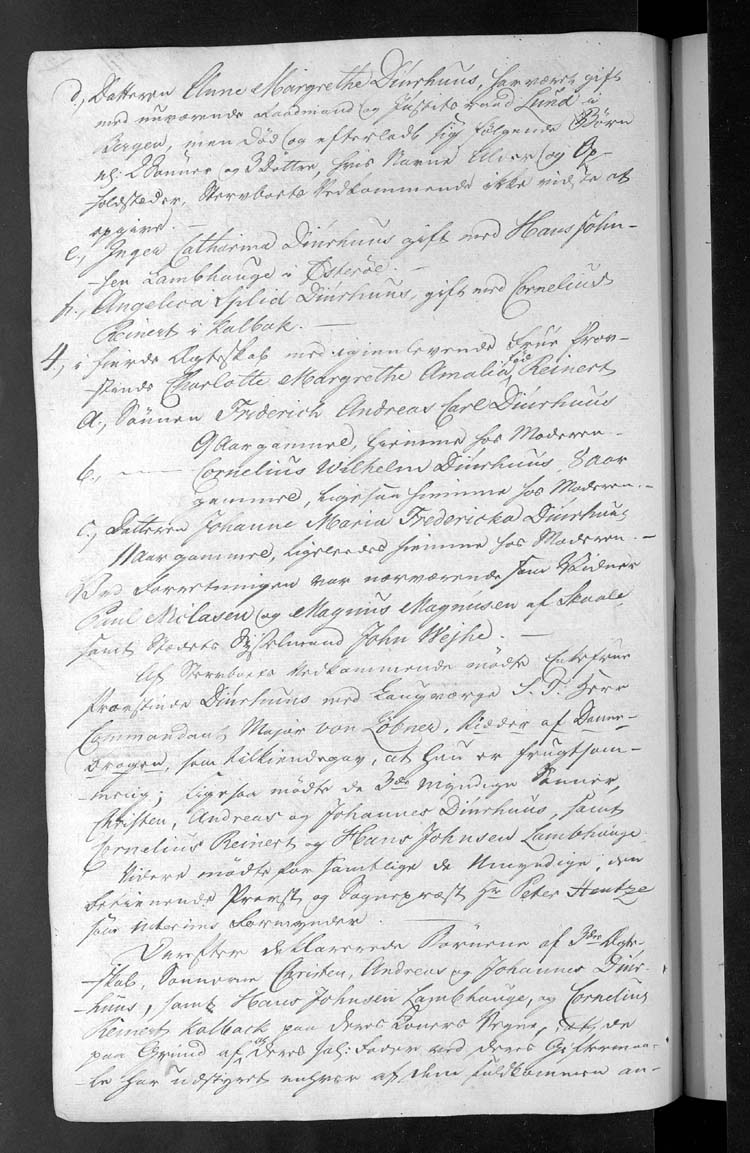 d, Datteren Anne Margrethe Diurhuus, har været gift
med nuværende Raadmand og Justitsraad Lund i
Bergen, men død og efterladt sig følgende Børn
nl: 2 Sønner og 3 Døttre, hvis Navne Alder og Op-
holdsteder, Stervboets Vedkommende ikke vidste at
opgive. -
e, Inger Catharina Diurhuus gift med Hans John-
-sen Lambhauge i Østerøe. -
f, Angelica Splid Diurhuus, gift med Cornelius
Reinert i Kalbak. -
4, i fierde Ægteskab med igienlevende Frue Prov-
-stinde Charlotte Margrethe Amalia fød Reinert
a, Sønnen Friderich Andreas Carl Diurhuus
9 Aar gammel, hiemme hos Moderen -
b, — Cornelius Wilhelm Diurhuus, 8 aar
gammel, ligesaa hiemme hos Moderen. -
c, Datteren Johanne Maria Fredericka Diurhuus
11 Aar gammel, ligeledes hiemme hos Moderen. -
Ved Forretningen var nærværende som Vidner
Paul Niclasen og Magnus Magnusen af Skaale
samt Stedets Sysselmand John Wejhe. -
Af Stervboets Vedkommende mødte Enkefrue
Provstinde Diurhuus med Laugværge S. T. Herr
Commandant Major von Løbner, Ridder af Danne-
brogen, som tilkiendegav, at hun er frugtsom-
melig; ligesaa mødte de 3de myndige Sønner,
Christen, Andreas og Johannes Diurhuus, samt
Cornelius Reinert og Hans Johnsen Lambhauge.
Videre mødte for samtlige de Umyndige, den
Provst og Sognepræst Hr Peter Hentze
som interims Formynder. -
Derefter deklarerede Børnene af 3die Ægte-
-skab, Sønnerne Christen, Andreas og Johannes Diur-
-huus, samt Hans Johnsen Lambhauge, og Cornelius
Reinert Kalback paa deres Koners Vegne, at de
paa Grund af at deres sal: Fader ved deres Giftermaa-
-le har udstyret enhver af dem fuldkommen an-